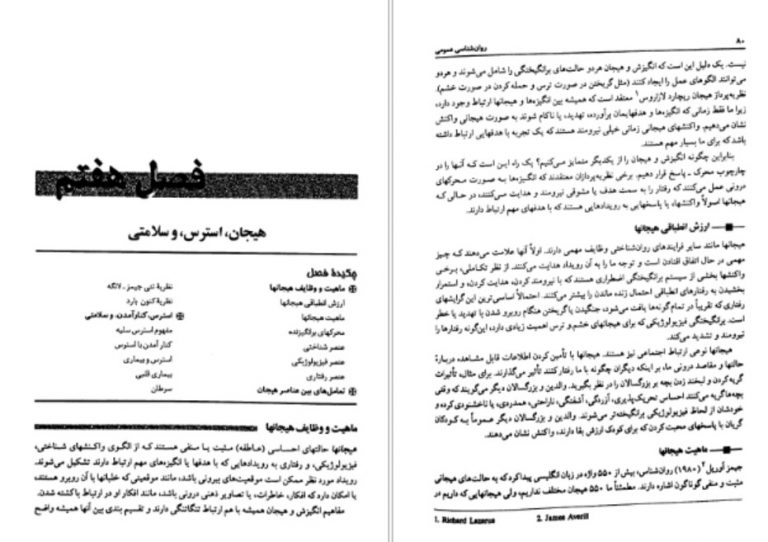 فصل هفتم
هیجان، استرس، و سلامتی
چکیدهٔ فصل
ماهیت و وظایف هیجانها
ارزش انطباقی هیجانها
ماهیت هیجانها
محرکهای برانگیزنده
عنصر شناختی
عنصر فیزیولوژیکی
عنصر رفتاری
تعاملهای بین عناصر هیجان
نظریهٔ تنی جیمز ـ لانگه
نظریهٔ کنون بارد
استرس، کنارآمدن، و سلامتی
مفهوم استرس سلیه
کنار آمدن با استرس
استرس و بیماری
بیماری قلبی
سرطان
ماهیت و وظایف هیجانها
هیجانها حالتهای احساسی (عاطفه) مثبت یا منفی هستند که از الگوی واکنشهای شناختی،
فیزیولوژیکی، و رفتاری به رویدادهایی که با هدفها یا انگیزه‌های مهم ارتباط دارند تشکیل می‌شوند.
رویداد مورد نظر ممکن است موقعیت‌های بیرونی باشد، مانند موقعیتی که خلبانها با آن روبرو هستند،
یا امکان دارد که افکار، خاطرات، یا تصاویر ذهنی درونی باشد، مانند افکار او در ارتباط باکشته شدن.
مفاهیم انگیزش و هیجان همیشه با هم ارتباط تنگاتنگی دارند و تقسیم بندی بین آنها همیشه واضح
۸۰
روان‌شناسی عمومی
نیست. یک دلیل این است که انگیزش و هیجان هردو حالت‌های برانگیختگی را شامل می‌شوند و هردو
می‌توانند الگوهای عمل را ایجاد کنند (مثل گریختن در صورت ترس و حمله کردن در صورت خشم).
نظریه‌پرداز هیجان ریچارد لازاروس۱ معتقد است که همیشه بین انگیزه‌ها و هیجانها ارتباط وجود دارد،
زیرا ما فقط زمانی که انگیزه‌ها و هدفهایمان برآورده، تهدید، یا ناکام شوند به صورت هیجانی واکنش
نشان می‌دهیم. واکنشهای هیجانی زمانی خیلی نیرومند هستند که یک تجربه با هدفهایی ارتباط داشته
باشد که برای ما بسیار مهم هستند.
بنابراین چگونه انگیزش و هیجان را از یکدیگر متمایز می‌کنیم؟ یک راه این است که آنها را در
چارچوب محرک ـ پاسخ قرار دهیم. برخی نظریه‌پردازان معتقدند که انگیزه‌ها به صورت محرکهای
درونی عمل می‌کنند که رفتار را به سمت هدف یا مشوقی نیرومند و هدایت می‌کنند، در حالی که
هیجانها اصولاً واکنشها، یا پاسخهایی به رویدادهایی هستند که با هدفهای مهم ارتباط دارند.
ارزش انطباقی هیجانها
هیجانها مانند سایر فرایندهای روان‌شناختی وظایف مهمی دارند. اولاً آنها علامت می‌دهند که چیز
مهمی در حال اتفاق افتادن است و توجه ما را به آن رویداد هدایت می‌کنند. از نظر تکاملی، برخی
واکنشها بخشی از سیستم برانگیختگی اضطراری هستند که با نیرومند کردن، هدایت کردن، و استمرار
بخشیدن به رفتارهای انطباقی احتمال زنده ماندن را بیشتر می‌کنند. احتمالاً اساسی‌ترین این گرایشهای
رفتاری که تقریباً در تمام گونه‌ها یافت می‌شود، جنگیدن یا گریختن هنگام روبرو شدن با تهدید یا خطر
است. برانگیختگی فیزیولوژیکی که برای هیجانهای خشم و ترس اهمیت زیادی دارد، این‌گونه رفتارها را
نیرومند و تشدید می‌کند.
هیجانها نوعی ارتباط اجتماعی نیز هستند. هیجانها با تأمین کردن اطلاعات قابل مشاهده دربارهٔ
حالتها و مقاصد درونی ما، بر اینکه دیگران چگونه با ما رفتار کنند تأثیر می‌گذارند. برای مثال، تأثیرات
گریه کردن و لبخند زدن بچه بر بزرگسالان را در نظر بگیرید. والدین و بزرگسالان دیگر می‌گویند که وقتی
بچه‌ها گریه می‌کنند احساس تحریک‌پذیری، آزردگی، آشفتگی، ناراحتی، همدردی، یا ناخشنودی کرده و
خودشان از لحاظ فیزیولوژیکی برانگیخته‌تر می‌شوند. والدین و بزرگسالان دیگر عموماً به کودکان
گریان با پاسخهای محبت کردن که برای کودک ارزش بقا دارند، واکنش نشان می‌دهند.
ماهیت هیجانها
جیمز آوریل۲ (۱۹۸۰) روان‌شناس، بیش از ۵۵۰ واژه در زبان انگلیسی پیدا کرد که به حالت‌های هیجانی
مثبت و منفی گوناگون اشاره دارند. مطمئناً ما ۵۵۰ هیجان مختلف نداریم، ولی هیجانهایی که داریم در
1. Richard Lazarus 2. James Averill